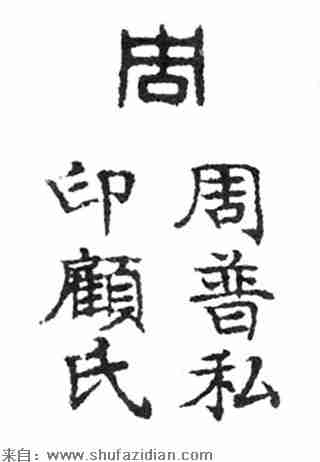 周
周普私
印顧氏
来自：www.shufazidian.com